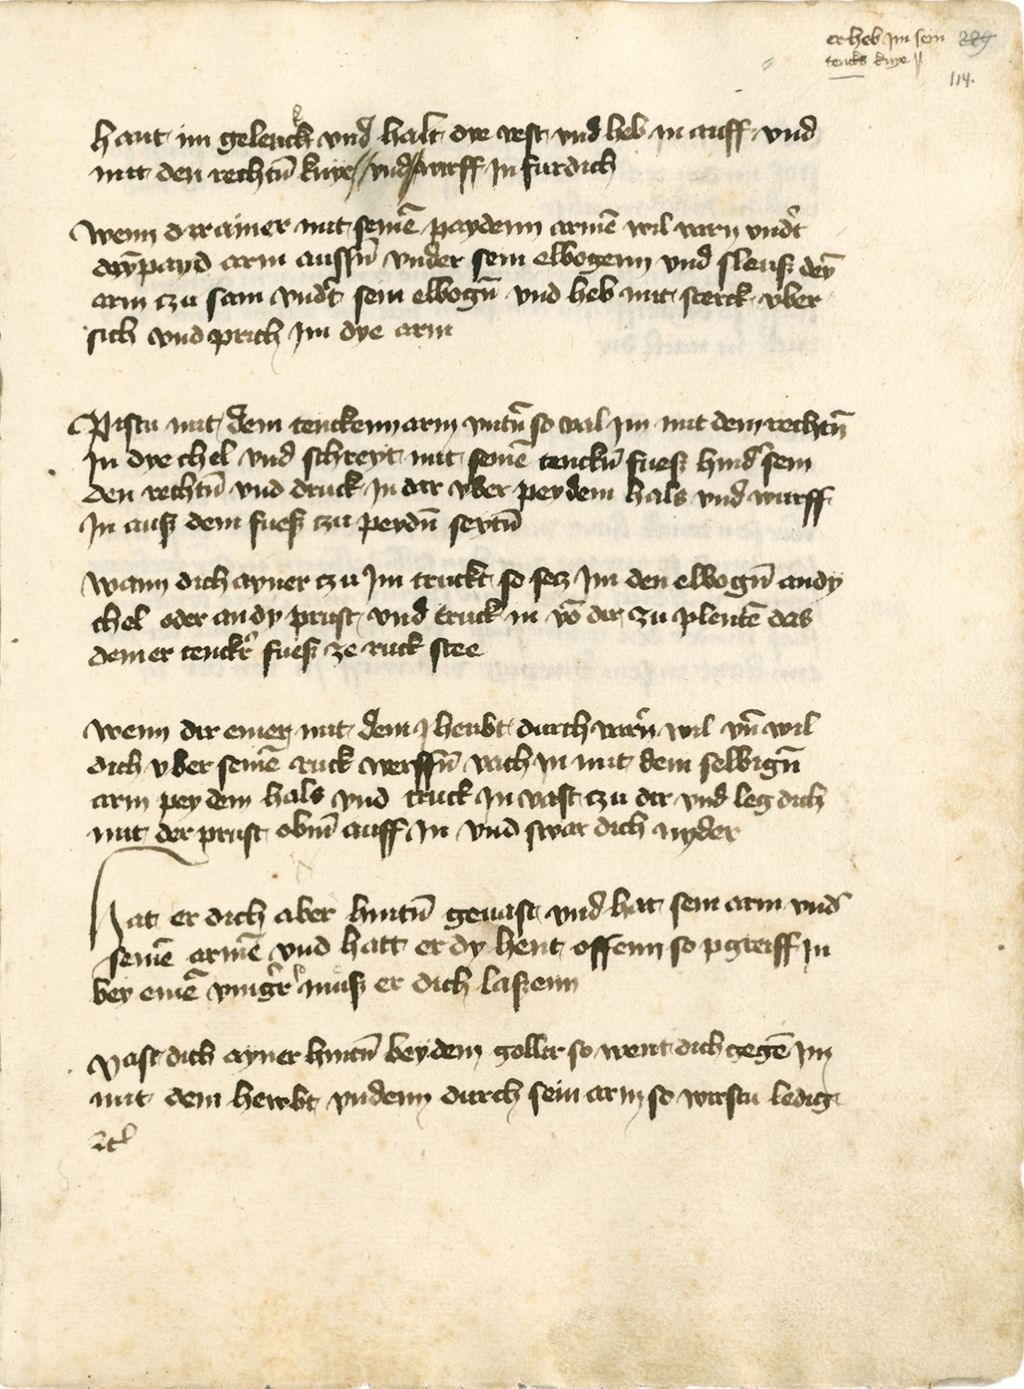 er heb Im sein 229
tencks knye ||
114.
hant im gelenck vnd halt dye vest vnd heb in auff vnd
mit den rechtn̄ knye // vnd wirff In fur dich
Wenn dir ainer mit seinē paydenn armē wil varn vnd't
paÿd arm aussn̄ vnder sein elbogenn vnd sleuß deȳ
arm tzu sam vnd't sein elbogn̄ vnd heb mit sterck vber
sich vnd prich Im dye arm
Pistu mit dem tenckenn arm vntn̄ so val Im mit dem rechtn̄
In dye chel vnd schreyt mit seinē tenckn̄ fueß hind' sein
den rechtn̄ vnd druck In dir vber pey dem hals vnd wurff
In auß dem fueß tzu peydn̄ seytn̄
Wann dich ayner tzu Im truckt so secz Im den elbogn̄ an dy
chel oder an dy prust vnd truck in vō dir zu plentē das
dein er tenck'r fueß ze ruck stee
Wenn dir einer mit dem heubt durch varn̄ wil vn̄ wil
dich vber seinē ruck werffn̄ vach in mit dem selbign̄
arm pey dem hals vnd truck In vast tzu dir vnd leg dich
mit der prust obn̄ auff In vnd swar dich nyder
Hat er dich aber hintn̄ geuast vnd hat sein arm vnd'
seinē armē vnd hatt er dy hent offenn so pgreiff In
bey einē ving'r muß er dich laßenn
Vast dich ayner hintn̄ bey dem goller so went dich gegē Im
mit dem hewbt vndenn durch sein arm so wirstu ledig
ꝛc